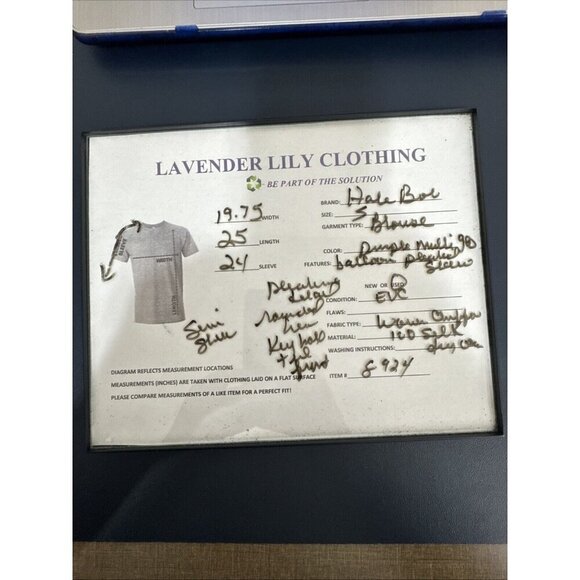 LAVENDER LILY CLOTHING
BE PART OF THE SOLUTION
19.75 WIDTH
25 LENGTH
24 SLEEVE
BRAND: Hale Bob
SIZE: S
GARMENT TYPE: Blouse
COLOR: Purple Multi
FEATURES: balloon
NEW OR USED
CONDITION: EUC
FLAWS:
FABRIC TYPE: Woven Chiffon
MATERIAL: 100 Silk
WASHING INSTRUCTIONS: dry
ITEM # 8924
SLEEVE
WIDTH
LENGTH
Semi
sheer
rounded
hem
Keyhole
DIAGRAM REFLECTS MEASUREMENT LOCATIONS
MEASUREMENTS (INCHES) ARE TAKEN WITH CLOTHING LAID ON A FLAT SURFACE
PLEASE COMPARE MEASUREMENTS OF A LIKE ITEM FOR A PERFECT FIT!